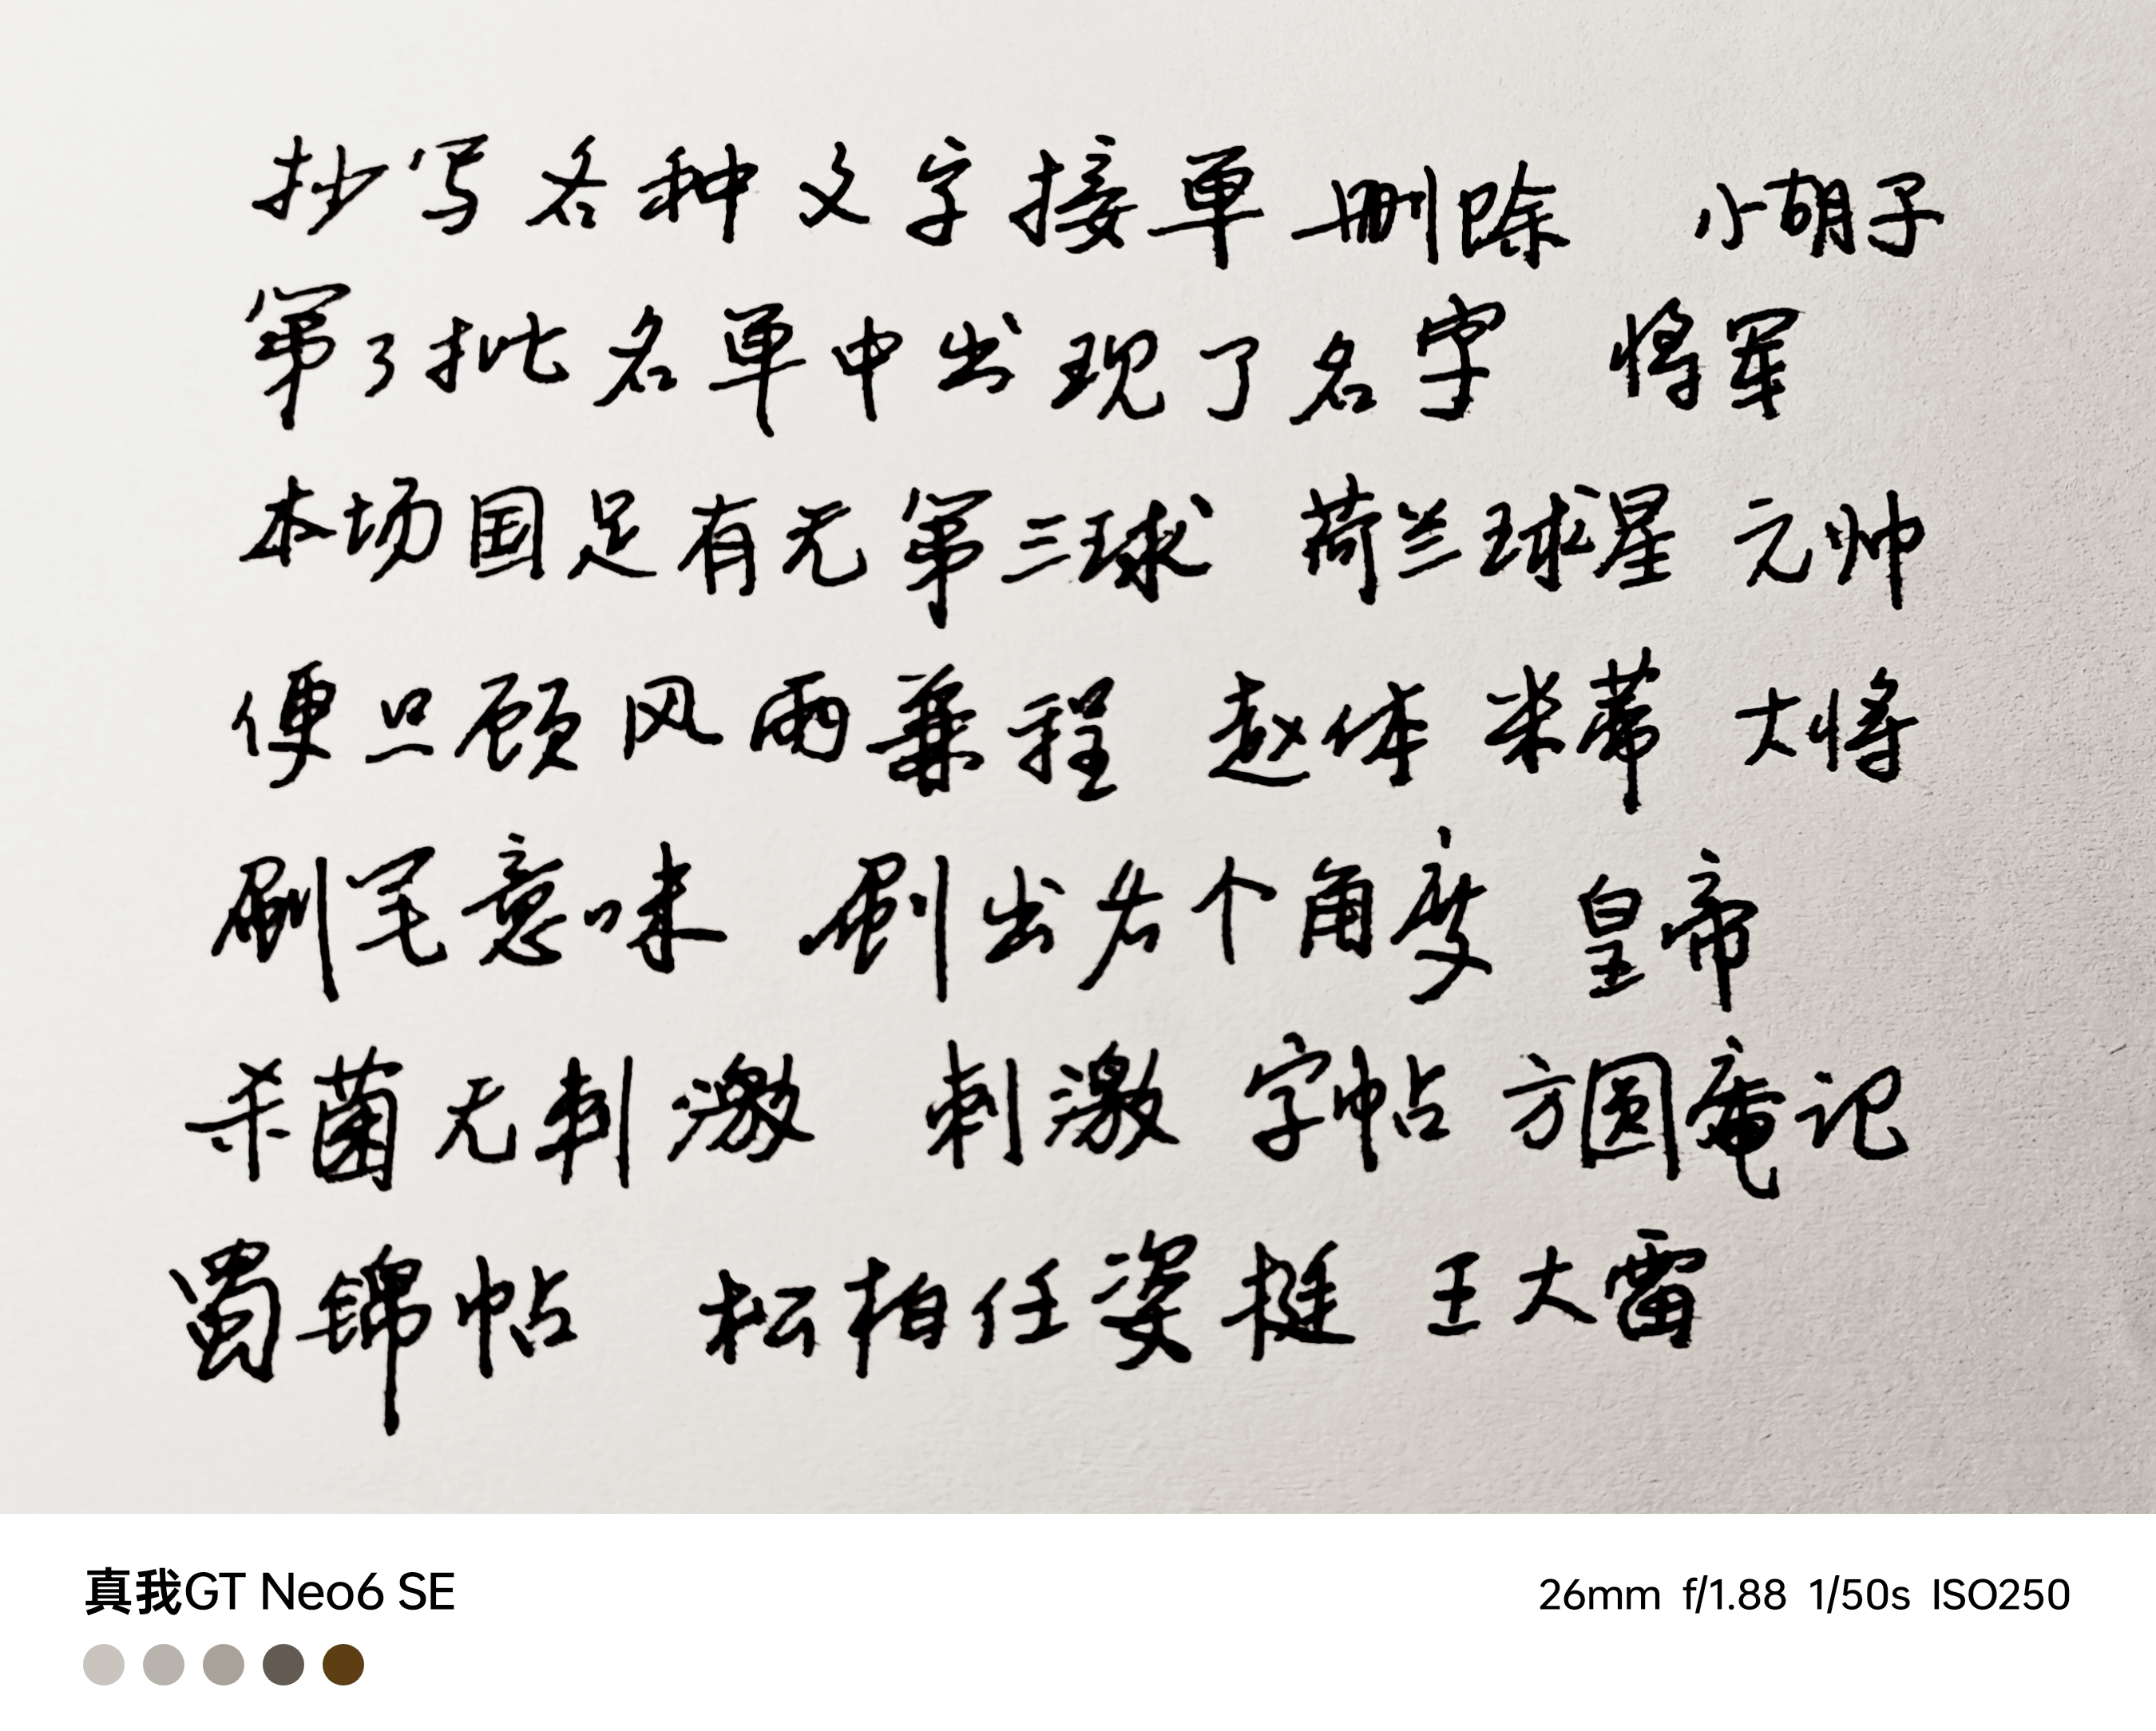 抄写各种文字接单 删除 小胡子
第3批名单中出现了名字 将军
本场国足有无第三球 荷兰球星 元帅
便只顾风雨兼程 赵体 米蒂 大将
刷毛意味 刷出各个角度 皇帝
杀菌无刺激 刺激 字帖 方圆庵记
蜀锦帖 松柏任姿挺 王大雷
真我GT Neo6 SE
26mm f/1.88 1/50s ISO250